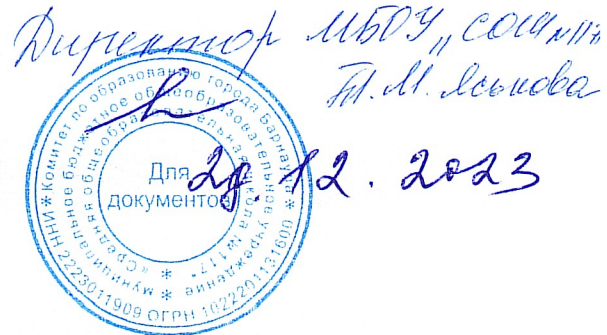 Директор МБОУ „СОШ №117"
Т.М. Яськова
29.12.2023
* Комитет по образованию города Барнаула * ИНН 2223011909 ОГРН 1022201131600
муниципальное бюджетное общеобразовательное учреждение *
«Средняя общеобразовательная школа №117» *
Для
документов